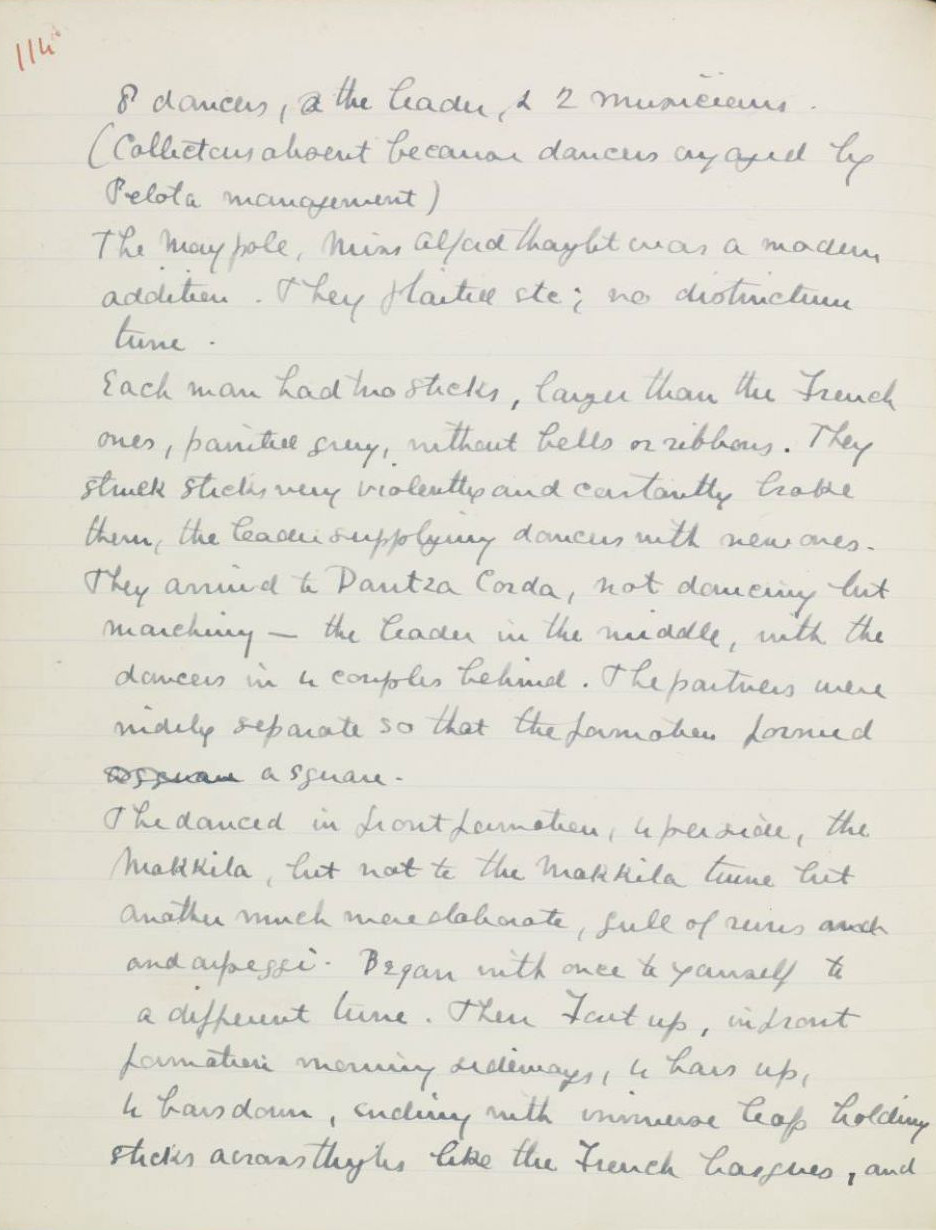 114
8 dancers, & the leader, & 2 musicians.
(Collectors absent because dancers engaged by
Pelota management)
The Maypole, Miss Alford thought was a modern
addition. They plaited etc; no distinctive
tune.
Each man had two sticks, larger than the French
ones, painted grey, without bells or ribbons. They
struck sticks very violently and constantly broke
them, the leader supplying dancers with new ones.
They arrived to Dantza Corda, not dancing but
marching — the leader in the middle, with the
dancers in 4 couples behind. The partners were
widely separate so that the formation formed
a square.
The danced in front formation, 4 per side, the
Makkila, but not to the Makkila tune but
another much more elaborate, full of runs and
and arpeggi. Began with once to yourself to
a different tune. Then Foot up, in front
formation moving sideways, 4 bars up,
4 bars down, ending with immense leap holding
sticks across thighs like the French Basques, and